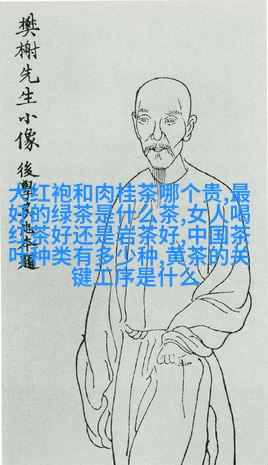 樊榭先生小像
後學題
大红袍和肉桂茶哪个贵,最
好的绿茶是什么茶,女人喝
红茶好还是岩茶好,中国茶
叶种类有多少种,黄茶的关
键工序是什么